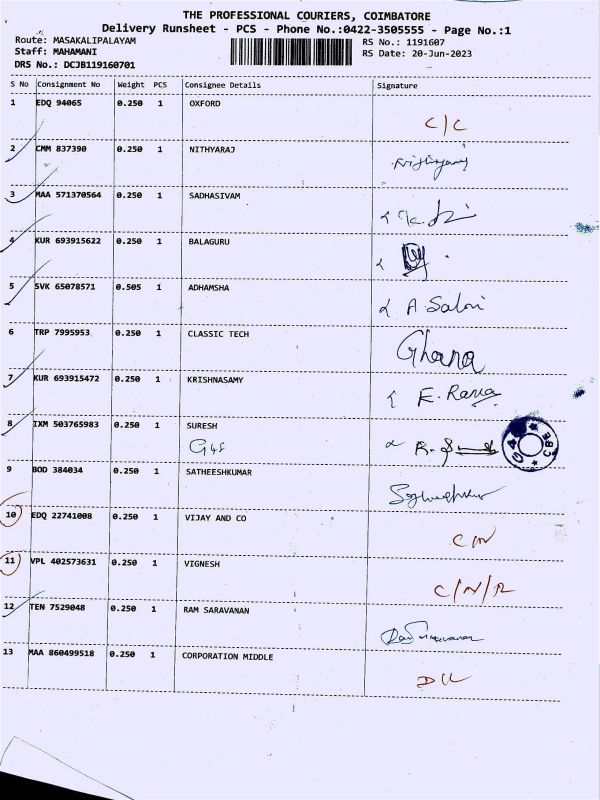 THE PROFESSIONAL COURIERS, COIMBATORE
Delivery Runsheet - PCS - Phone No.:0422-3505555 - Page No.:1
Route: MASAKALIPALAYAM RS No.: 1191607
Staff: MAHAMANI RS Date: 20-Jun-2023
DRS No.: DCJB119160701
S No Consignment No Weight PCS Consignee Details Signature
1 EDQ 94065 0.250 1 OXFORD
C/C
2 CMM 837390 0.250 1 NITHYARAJ
3 MAA 571370564 0.250 1 SADHASIVAM
4 KUR 693915622 0.250 1 BALAGURU
5 SVK 65078571 0.505 1 ADHAMSHA
A. Salmi
6 TRP 7995953 0.250 1 CLASSIC TECH
Ghana
7 KUR 693915472 0.250 1 KRISHNASAMY
E. Rana
8 IXM 503765983 0.250 1 SURESH
G4S
G4S CBE
9 BOD 384034 0.250 1 SATHEESHKUMAR
10 EDQ 22741008 0.250 1 VIJAY AND CO
C/N
11 VPL 402573631 0.250 1 VIGNESH
C/N/R
12 TEN 7529048 0.250 1 RAM SARAVANAN
13 MAA 860499518 0.250 1 CORPORATION MIDDLE
D/L